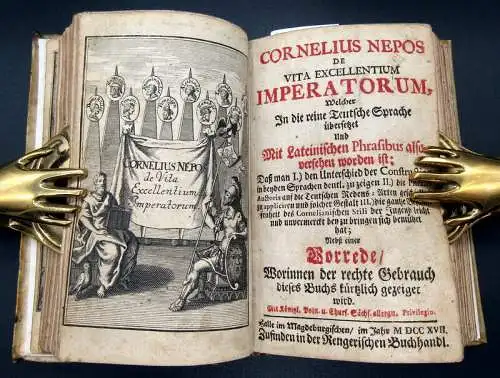 CORNELIUS NEPO
de Vita
Excellentium
Imperatorum
CORNELIUS NEPOS
DE
VITA EXCELLENTIUM
IMPERATORUM,
Welcher
In die reine Teutsche Sprache
übersetzet
Und
Mit Lateinischen Phrasibus also
versehen worden ist;
Daß man I.) den Unterschied der
in beyden Sprachen deutl. zu zeigen II.) die
Authoris auf die Teutschen Redens-Arten
zu appliciren und solcher Gestalt III.) die gantze
freheit des Cornelianischen Stili der Jugend leicht
und unvermerckt bey zu bringen sich bemühet
hat;
Nebst einer
Vorrede/
Worinnen der rechte Gebrauch
dieses Buchs kürtzlich gezeiget
wird.
Mit Königl. Poln. u. Churf. Sächs. allergn. Privilegio.
Halle im Magdeburgischen/ im Jahr M DCC XVII.
Zufinden in der Rengerischen Buchhandl.